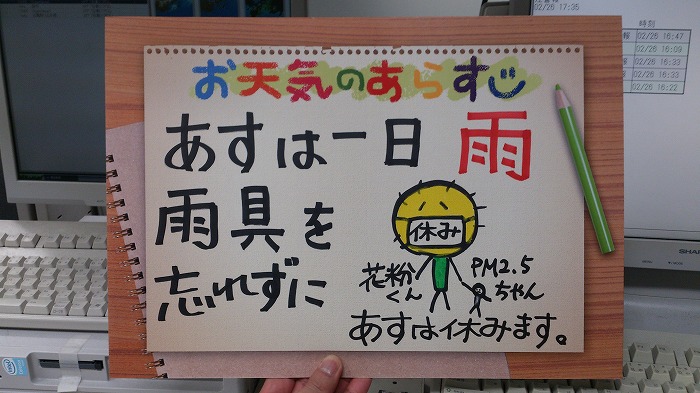 お天気のあらすじ
あすは一日 雨
雨具を
忘れずに
休み
花粉くん
PM2.5ちゃん
あすは休みます。
17:35
時刻
02/26 16:47
02/26 16:09
02/26 16:33
02/26 16:33
02/26 16:22
SHAR
intel